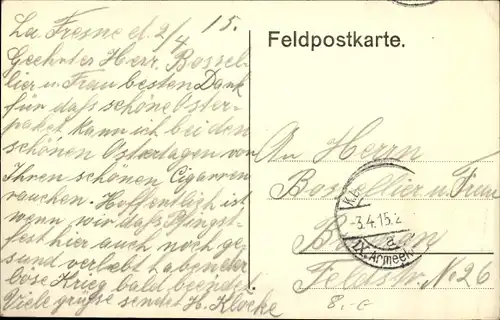 La Fresne d. 2/4 15.
Geehrter Herr Bossel-
lier u. Frau besten Dank
für daß schöne Oster-
paket, kann ich bei den
schönen Ostertagen von
Ihren schönen Cigarren
rauchen. Hoffentlich ist
wenn wir daß Pfingst-
fest hier auch noch ge-
sund verlebt haben der
böse Krieg bald beendet.
Viele grüße sendet H. Klocke
Feldpostkarte.
An Herrn
Bossellier u. Frau
Feldstr. No 26
-3.4.15.
a
IX. Armeek.
8.-